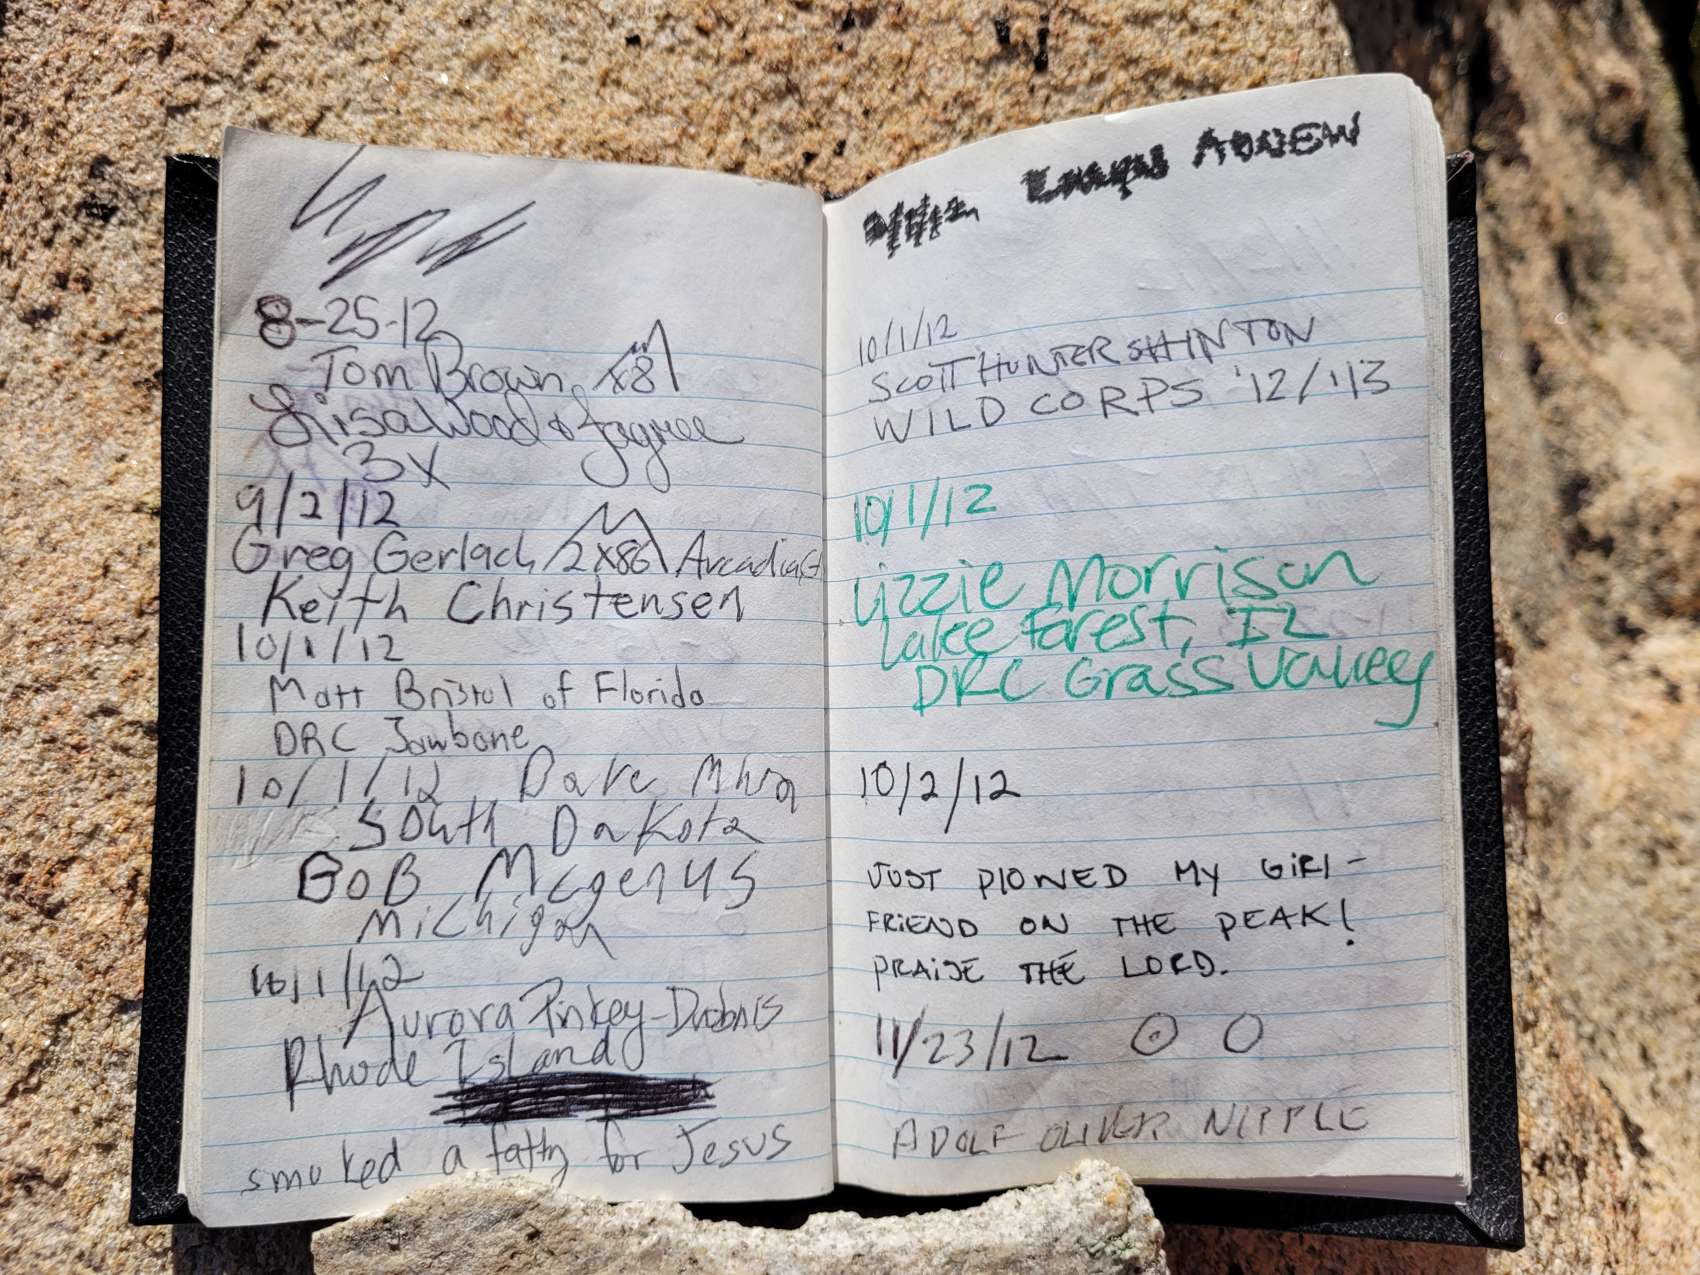 8-25-12
Tom Brown x8
Lisa Wood &
3x
9/2/12
Greg Gerlach 2x86
Keith Christensen
10/1/12
Matt Bristol of Florida
DRC Jawbone
10/1/12 Dave
South Dakota
BoB Mcgenus
Michigan
10/1/12
Aurora Pinkey-
Rhode Island
smoked a fatty for Jesus
ANDREW
10/1/12
SCOTT HUNTER SHINTON
WILD CORPS '12/'13
10/1/12
Lizzie Morrison
Lake Forest, IL
DRC Grass Valley
10/2/12
JUST PLOWED MY GIRL-
FRIEND ON THE PEAK!
PRAISE THE LORD.
11/23/12
ADOLF OLIVER NIPPLE